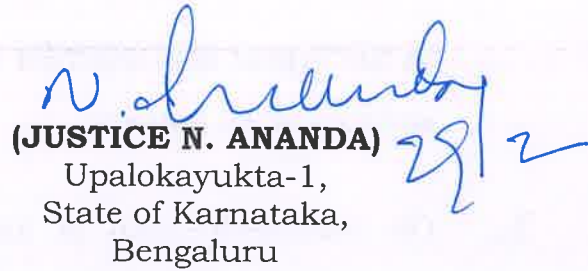 N. Ananda
(JUSTICE N. ANANDA) 29/2
Upalokayukta-1,
State of Karnataka,
Bengaluru